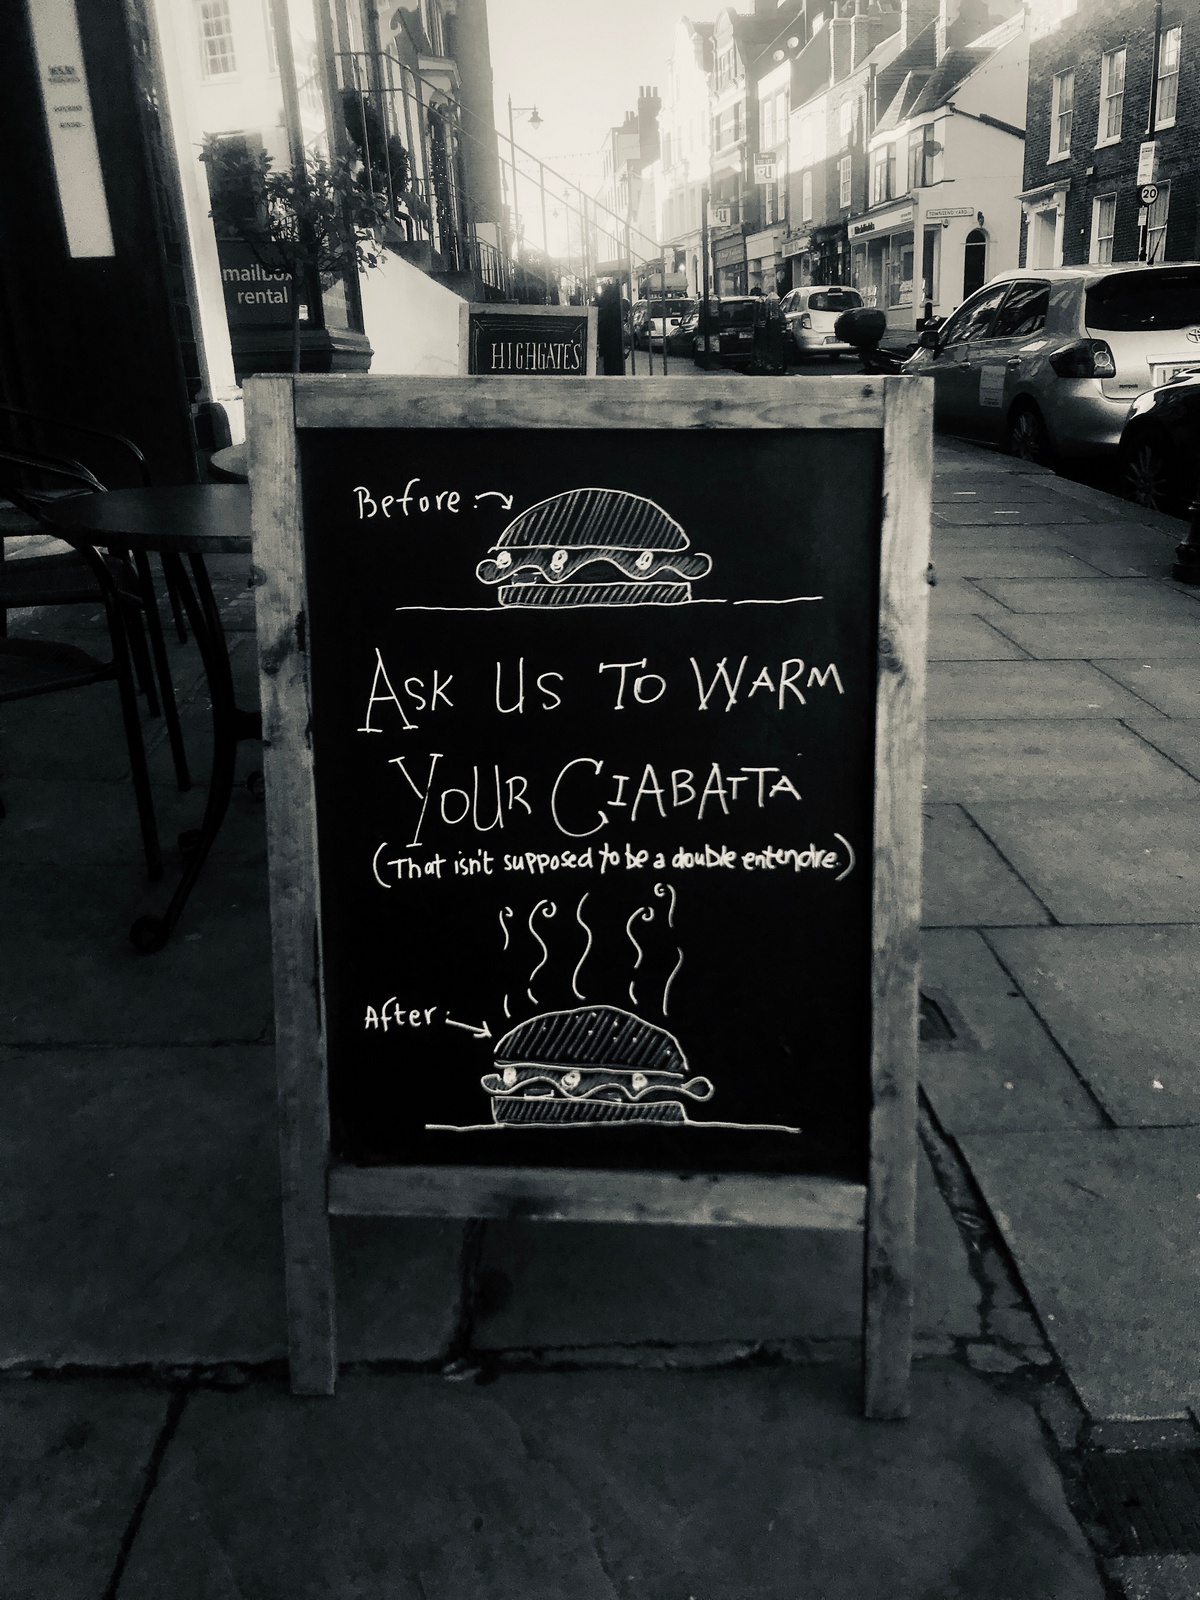 mailbox
rental
HIGHGATE'S
TOWNSEND YARD
20
Before
Ask Us To WARM
YOUR CIABATTA
(That isn't supposed to be a double entendre.)
After: